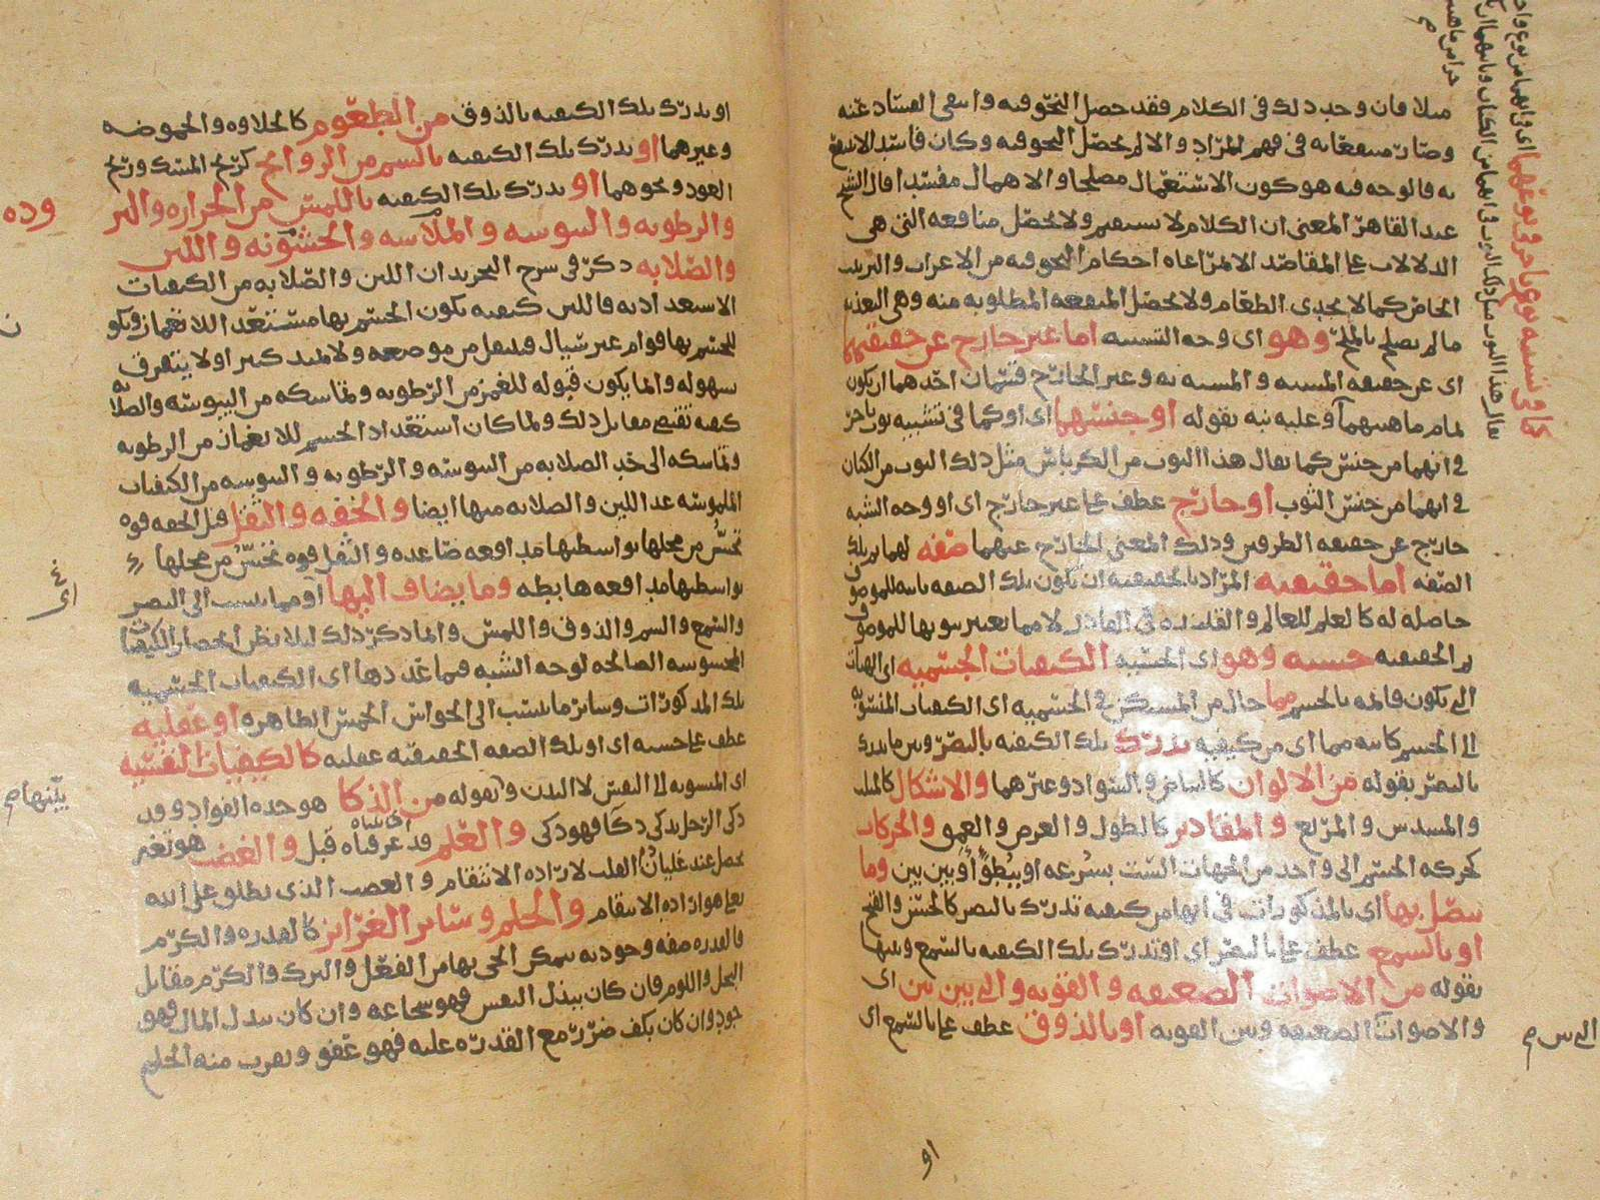 مثلا فان وجد ذلك فى الكلام فقد حصل النحو فيه وانتفى الفساد عنه
وصار منتفعا به فى فهم المراد والا لم يحصل النحو فيه وكان فاسدا لا ينتفع
به فالوجه فيه هو كون الاستعمال مصلحا والاهمال مفسدا قال الشيخ
عبد القاهر المعنى ان الكلام لا يستقيم ولا تحصل منافعه التى هى
الدلالات على المقاصد الا بمراعاه احكام النحو فيه من الاعراب والترتيب
الخاص كما لا يجدى الطعام ولا تحصل المنفعه المطلوبه منه وهى التغذيه
ما لم يصلح بالملح وهو اى وجه التشبيه اما غير خارج عن حقيقتهما
اى عن حقيقه المشبه والمشبه به وغير الخارج قسمان احدهما ان يكون
تمام ماهيتهما وعليه نبه بقوله او جنسهما اى او كما فى تشبيه ثوب باخر
فى انهما من جنس كما يقال هذا الثوب من الكرباس مثل ذلك الثوب من الكتان
فى انهما من جنس الثوب او خارج عطف على غير خارج اى او وجه الشبه
خارج عن حقيقه الطرفين وذلك المعنى الخارج عنهما صفه لهما ثم تلك
الصفه اما حقيقيه المراد بالحقيقيه ان تكون تلك الصفه ثابته للموصوف
حاصله له كالعلم للعالم والقدره فى القادر لا مما يعتبر ثبوتها للموصوف
ثم الحقيقيه حسيه وهو اى الحسيه الكيفيات الجسميه اى الهيات
التى تكون قائمه بالجسم مما حال من المستكن فى الجسميه اى الكيفيات المنسوبه
الى الجسم كائنه مما اى من كيفيه يدرك تلك الكيفيه بالبصر وبين ما يدرك
بالبصر بقوله من الالوان كالبياض والسواد وغيرهما والاشكال كالمثلث
والمسدس والمربع والمقادير كالطول والعرض والعمق والحركات
كحركه الجسم الى واحد من الجهات الست بسرعه او ببطوء او بين بين وما
يتصل بها اى بالمذكورات فى انها من كيفيه تدرك بالبصر كالحسن والقبح
او بالسمع عطف على بالبصر اى او تدرك تلك الكيفيه بالسمع وبينها
بقوله من الاصوات الضعيفه والقويه والتى بين بين اى
والاصوات الضعيفه وبين القويه او بالذوق عطف على بالسمع اى
او
او يدرك تلك الكيفيه بالذوق من الطعوم كالحلاوه والحموضه
وغيرهما او يدرك تلك الكيفيه بالشم من الروائح كريح المسك وريح
العود ونحوهما او يدرك تلك الكيفيه باللمس من الحراره والبر
وده
والرطوبه واليبوسه والملاسه والخشونه واللين
والصلابه ذكر فى شرح التجريد ان اللين والصلابه من الكيفيات
الاستعداديه فاللين كيفيه يكون الجسم بها مستعدا للانغماز ويكو
ن
للجسم بها قوام غير سيال فينتقل من موضعه ولا يمتد كثيرا ولا يتفرق
بسهوله وانما يكون قبوله للغمز من الرطوبه وتماسكه من اليبوسه والصلابه
كيفيه تقتضى مقابل ذلك ولما كان استعداد الجسم للانغماز من الرطوبه
وتماسكه الى حد الصلابه من اليبوسه والرطوبه واليبوسه من الكيفيات
الملموسه عد اللين والصلابه منها ايضا والخفه والثقل قيل الخفه قوه
تحس من محلها بواسطتها مدافعه صاعده والثقل قوه تحس من محلها
بواسطتها مدافعه هابطه وما يضاف اليها او مما ينسب الى البصر
اى
والسمع والشم والذوق واللمس وانما ذكر ذلك لئلا يظن انحصار الكيفيات
المحسوسه الصالحه لوجه الشبه فيما عددها اى الكيفيات الجسميه
تلك المذكورات وسائر ما ينتسب الى الحواس الخمس الظاهره او عقليه
عطف على حسيه اى او تلك الصفه الحقيقيه عقليه كالكيفيات النفسيه
اى المنسوبه الى النفس لا البدن بقوله من الذكا هو حده الفواد وقد
بينها م
ذكى الرجل يذكى ذكا فهو ذكى والعلم قد عرفناه قبل والغضب هو تغير
يحصل عند غليان القلب لاراده الانتقام والغضب الذى يطلق على الله
تعالى هو اراده الانتقام والحلم وسائر الغرائز كالقدره والكرم
فالقدره صفه وجوديه يتمكن الحى بها من الفعل والترك والكرم مقابل
البخل واللوم فان كان ببذل النفس فهو شجاعه وان كان ببذل المال فهو
جود وان كان بكف ضرر مع القدره عليه فهو عفو ويقرب منه الحلم